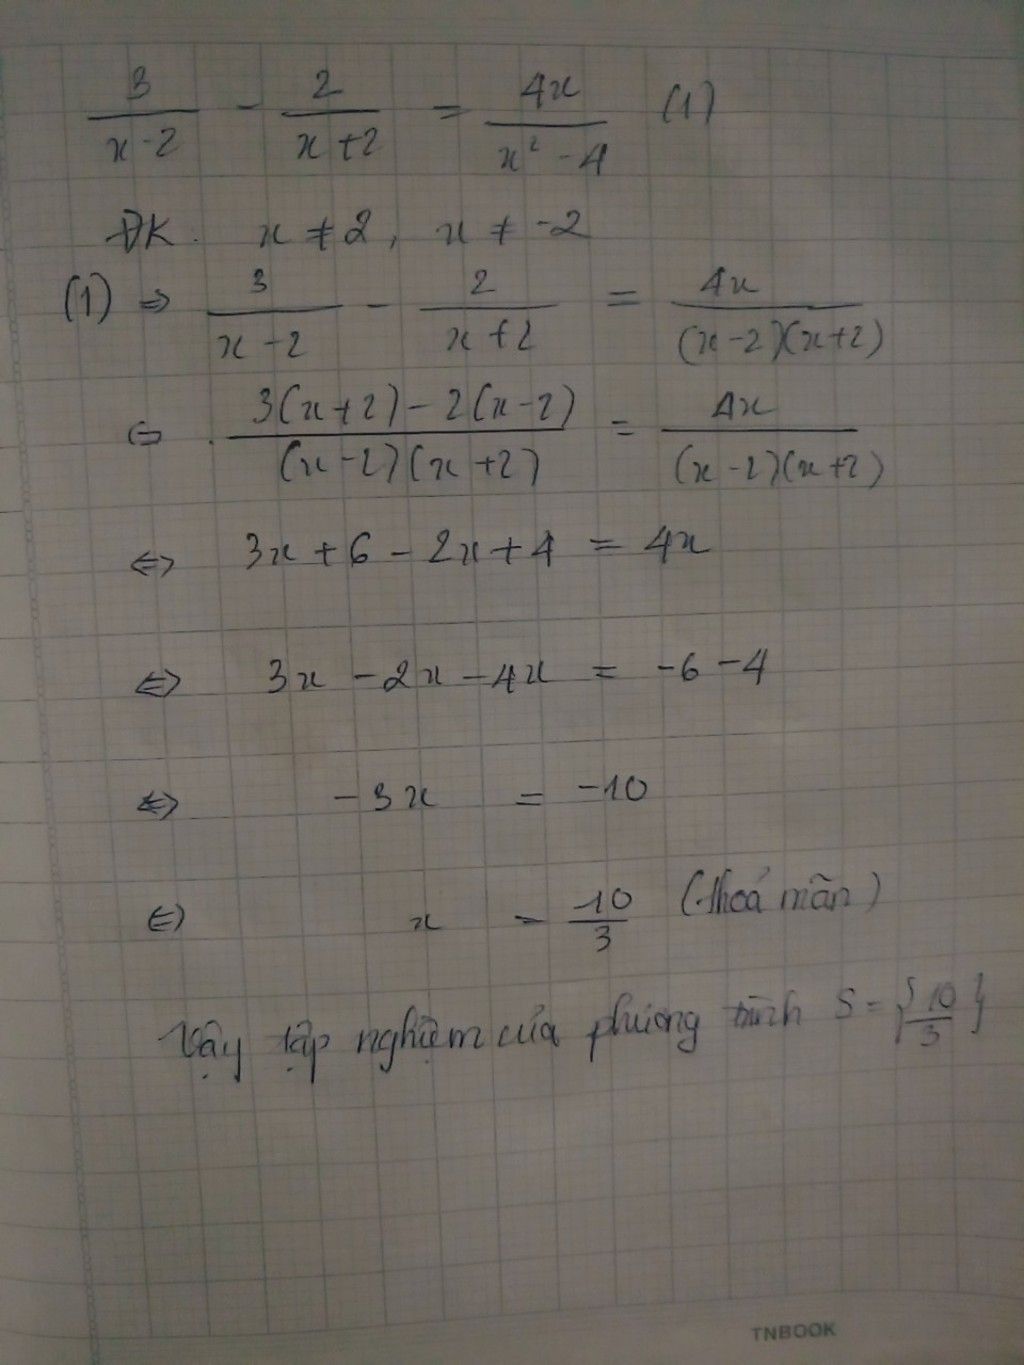 3/(x-2) - 2/(x+2) = 4x/(x² - 4) (1)
ĐK. x ≠ 2, x ≠ -2
(1) ⇒ 3/(x-2) - 2/(x+2) = 4x/((x-2)(x+2))
⇔ (3(x+2) - 2(x-2))/((x-2)(x+2)) = 4x/((x-2)(x+2))
⇔ 3x + 6 - 2x + 4 = 4x
⇔ 3x - 2x - 4x = -6 - 4
⇔ -3x = -10
⇔ x = 10/3 (thoả mãn)
Vậy tập nghiệm của phương trình S = {10/3}
TNBOOK